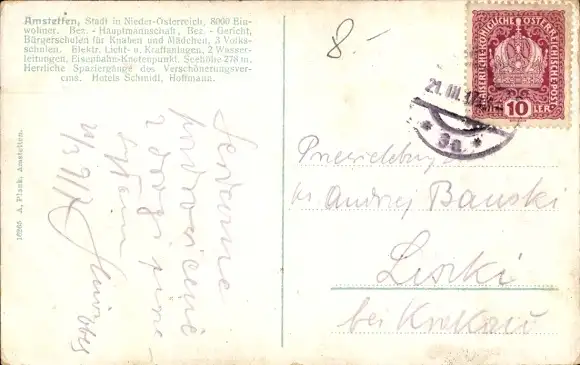 Amstetten, Stadt in Nieder-Österreich, 8000 Ein-
wohner. Bez.-Hauptmannschaft, Bez.-Gericht,
Bürgerschulen für Knaben und Mädchen, 3 Volks-
schulen. Elektr. Licht- u. Kraftanlagen, 2 Wasser-
leitungen, Eisenbahn-Knotenpunkt. Seehöhe 278 m.
Herrliche Spaziergänge des Verschönerungsver-
eins. Hotels Schmidl, Hoffmann.
8.-
KAISERLICH-KÖNIGLICHE ÖSTERREICHISCHE POST
10
HELLER
21.III.17
* 3a *
16265 A. Plank, Amstetten.
Serdeczne
pozdrowienie
z drogi
Przewielebny
ks Andrzej Bauski
Liszki
bei Krakau